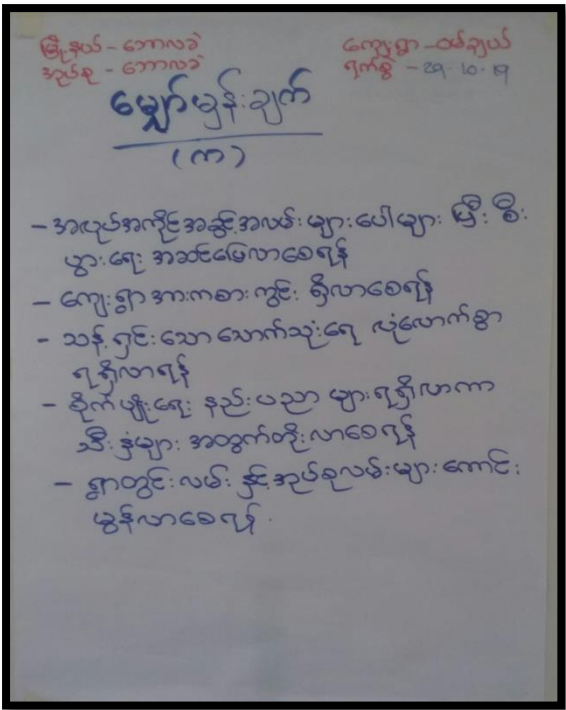 မြို့နယ် - ဘောလခဲ ကျေးရွာ - ဝမ်ချယ်
အုပ်စု - ဘောလခဲ ရက်စွဲ - 29.10.19
မျှော်မှန်းချက်
(က)
- အလုပ်အကိုင်အခွင့်အလမ်းများပေါများ ပြီး စီး
ပွားရေး အဆင်ပြေလာစေရန်
- ကျေးရွာ အားကစားကွင်း ရှိလာစေရန်
- သန့်ရှင်းသော သောက်သုံးရေ လုံလောက်စွာ
ရရှိလာရန်
- စိုက်ပျိုးရေး နည်းပညာ များရရှိလာကာ
သီးနှံများ အထွက်တိုးလာစေရန်
- ရွာတွင်းလမ်း နှင့်အုပ်စုလမ်းများကောင်း
မွန်လာစေရန်.